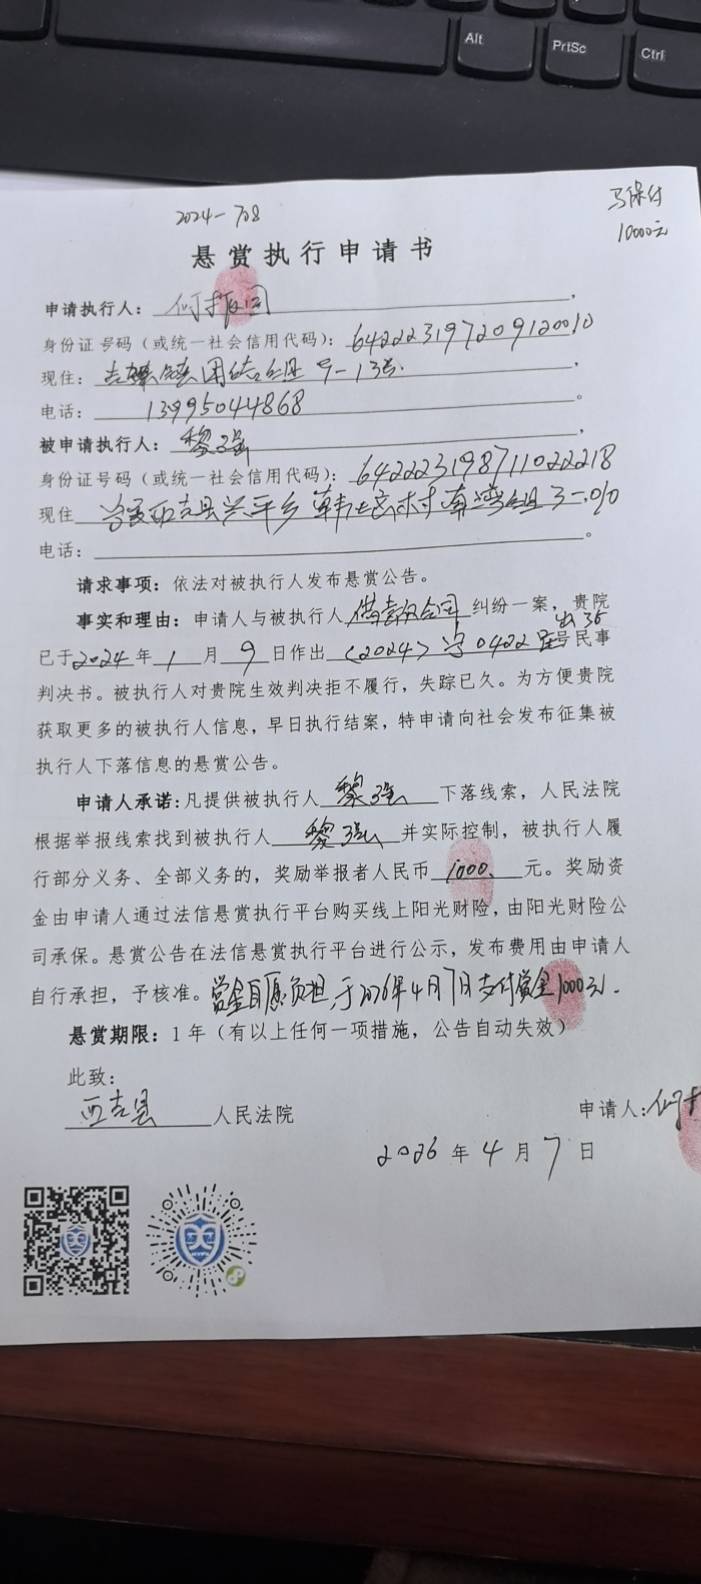 Alt
PrtSc
Ctrl
2024-708
马保付
10000元
悬赏执行申请书
申请执行人：何振国，
身份证号码（或统一社会信用代码）：642223197209120010
现住：吉强镇团结组 9-13号，
电话：13995044868。
被申请执行人：黎强，
身份证号码（或统一社会信用代码）：642223198711022218
现住 西吉县兴平乡 村 湾组 3-010
电话：。
请求事项：依法对被执行人发布悬赏公告。
事实和理由：申请人与被执行人 借款合同 纠纷一案，贵院
已于2024年1月9日作出（2024）宁0422 号民事
判决书。被执行人对贵院生效判决拒不履行，失踪已久。为方便贵院
获取更多的被执行人信息，早日执行结案，特申请向社会发布征集被
执行人下落信息的悬赏公告。
申请人承诺：凡提供被执行人 黎强 下落线索，人民法院
根据举报线索找到被执行人 黎强 并实际控制，被执行人履
行部分义务、全部义务的，奖励举报者人民币 1000、元。奖励资
金由申请人通过法信悬赏执行平台购买线上阳光财险，由阳光财险公
司承保。悬赏公告在法信悬赏执行平台进行公示，发布费用由申请人
自行承担，予核准。赏金自愿负担，于2026年4月7日支付赏金1000元。
悬赏期限：1年（有以上任何一项措施，公告自动失效）
此致：
西吉县 人民法院
申请人：何
2026年4月7日